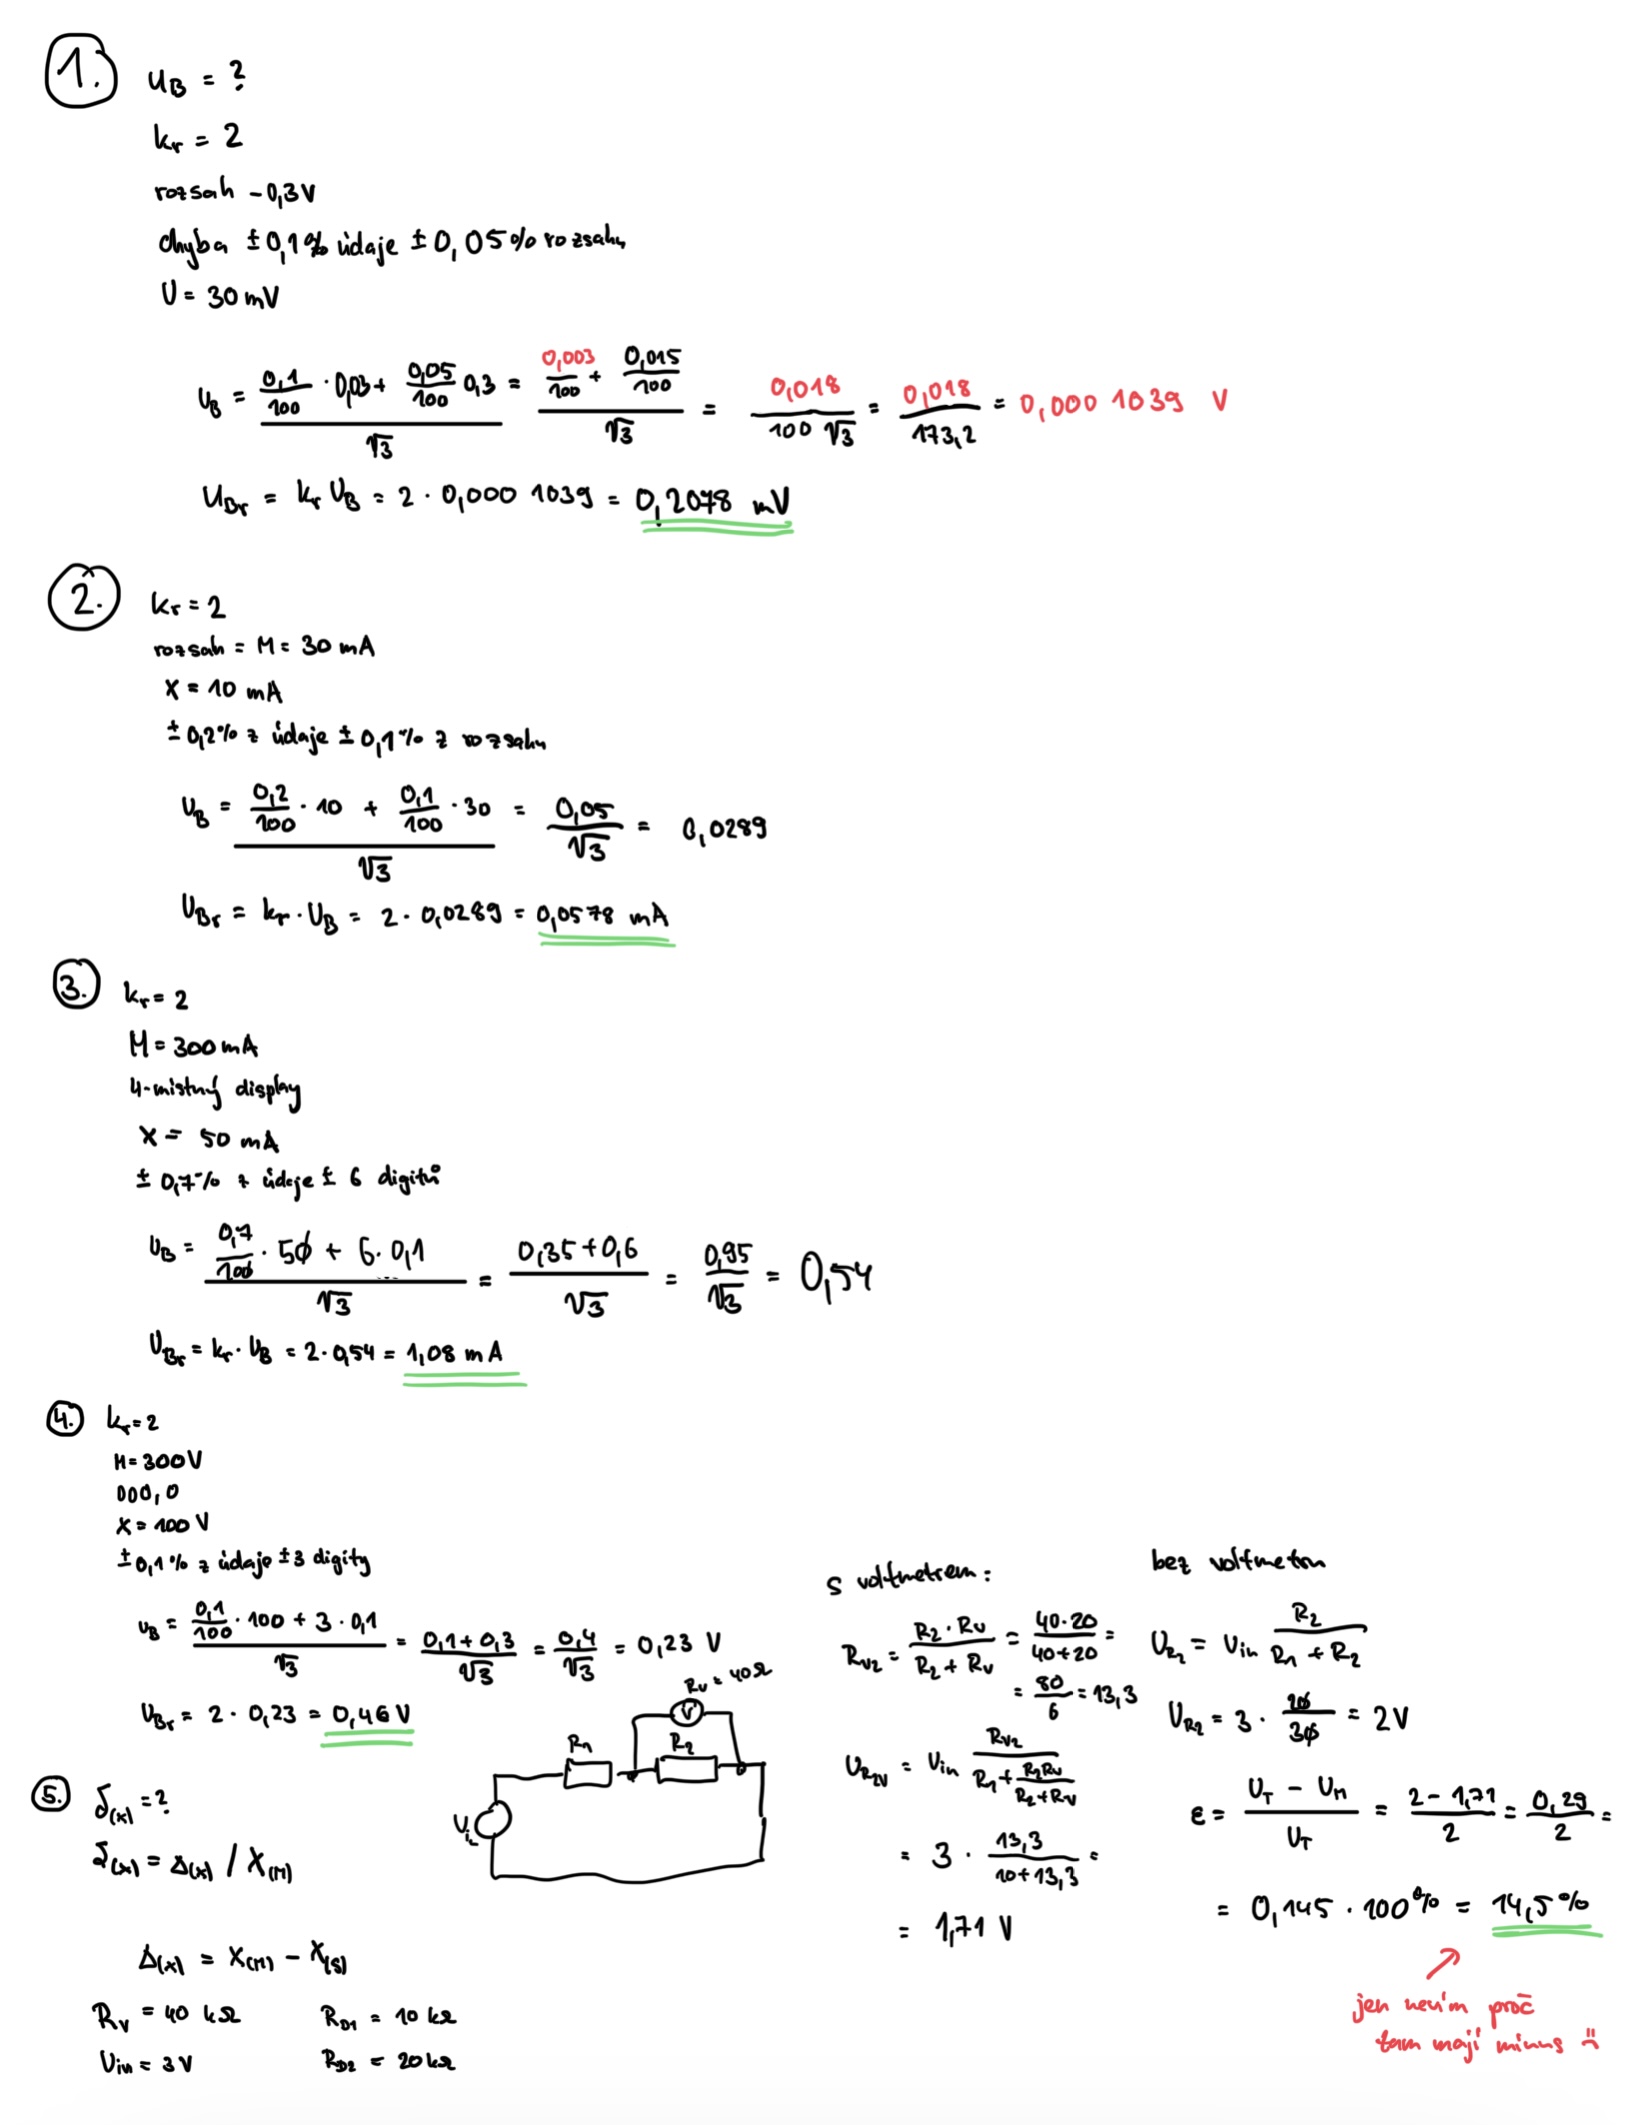 1.
u_B = ?
k_r = 2
rozsah - 0,3 V
chyba ± 0,1 % údaje ± 0,05 % rozsahu
U = 30 mV
U_B = (0,1/100 · 0,03 + 0,05/100 0,3)/√3 = (0,003/100 + 0,015/100)/√3 = 0,018/(100 √3) = 0,018/173,2 = 0,000 1039 V
U_Br = k_r U_B = 2 · 0,000 1039 = 0,2078 mV
2.
k_r = 2
rozsah = M = 30 mA
X = 10 mA
± 0,2 % z údaje ± 0,1 % z rozsahu
U_B = (0,2/100 · 10 + 0,1/100 · 30)/√3 = 0,05/√3 = 0,0289
U_Br = k_r · U_B = 2 · 0,0289 = 0,0578 mA
3.
k_r = 2
M = 300 mA
4-místný display
X = 50 mA
± 0,7 % z údaje ± 6 digitů
U_B = (0,7/100 · 50 + 6 · 0,1)/√3 = (0,35 + 0,6)/√3 = 0,95/√3 = 0,54
U_Br = k_r · U_B = 2 · 0,54 = 1,08 mA
4.
k_r = 2
M = 300 V
000,0
X = 100 V
± 0,1 % z údaje ± 3 digity
u_B = (0,1/100 · 100 + 3 · 0,1)/√3 = (0,1 + 0,3)/√3 = 0,4/√3 = 0,23 V
U_Br = 2 · 0,23 = 0,46 V
5.
δ(x) = ?
δ(x) = Δ(x) / X(M)
Δ(x) = X(M) - X(S)
R_V = 40 kΩ
R_D1 = 10 kΩ
U_in = 3 V
R_D2 = 20 kΩ
R_V = 40 Ω
V
R_1
R_2
V_in
s voltmetrem:
R_V2 = (R_2 · R_V)/(R_2 + R_V) = (40 · 20)/(40 + 20) =
= 80/6 = 13,3
U_R2V = V_in R_V2/(R_1 + (R_2 R_V)/(R_2 + R_V))
= 3 · 13,3/(10 + 13,3) =
= 1,71 V
bez voltmetru
U_R2 = V_in R_2/(R_1 + R_2)
U_R2 = 3 · 20/30 = 2 V
ε = (U_T - U_M)/U_T = (2 - 1,71)/2 = 0,29/2 =
= 0,145 · 100 % = 14,5 %
jen nevím proč
tam mají minus :(